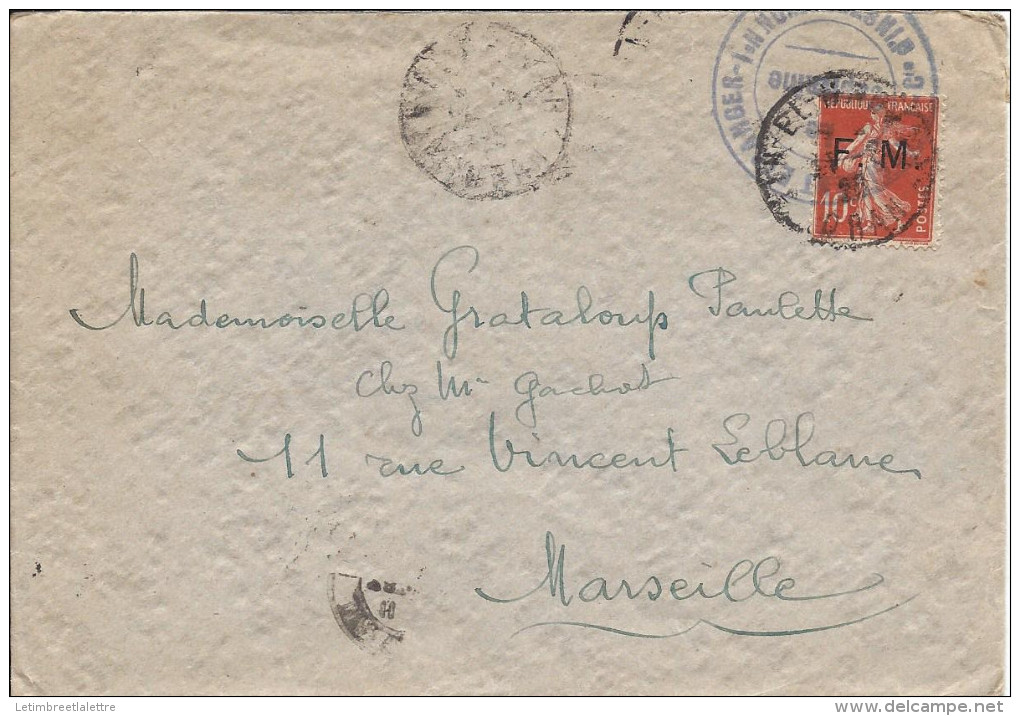 REPUBLIQUE FRANÇAISE
F. M.
10c
POSTES
ORAN
Mademoiselle Grataloup Paulette
chez Mr Gachot
11 rue Vincent Leblanc
Marseille
Letimbreetlalettre
delcampe.net